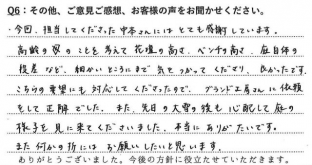 Q6：その他、ご意見ご感想、お客様の声をお聞かせください。
・今回、担当してくださった中本さんにはとても感謝しています。
高齢の父のことを考えて花壇の高さ、ベンチの高さ、庭自体の
段差など、細かいところまで気をつかってくださり、良かったです。
こちらの要望にも対応してくださったので、ブランドエ房さんに依頼
をして正解でした。また、先日の大雪の後も心配して庭の
様子を見に来てくださいました。本当にありがたいです。
また何かの折にはお願いしたいと思います。
ありがとうございました。今後の方針に役立たせていただきます。